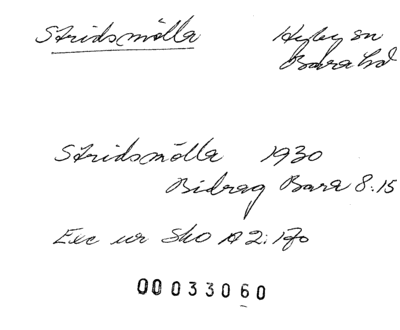 Stridsmölla Hyby sn
Bara hd
Stridsmölla 1930
Bidrag Bara 8:15
Exc ur SkO A2:170
00033060